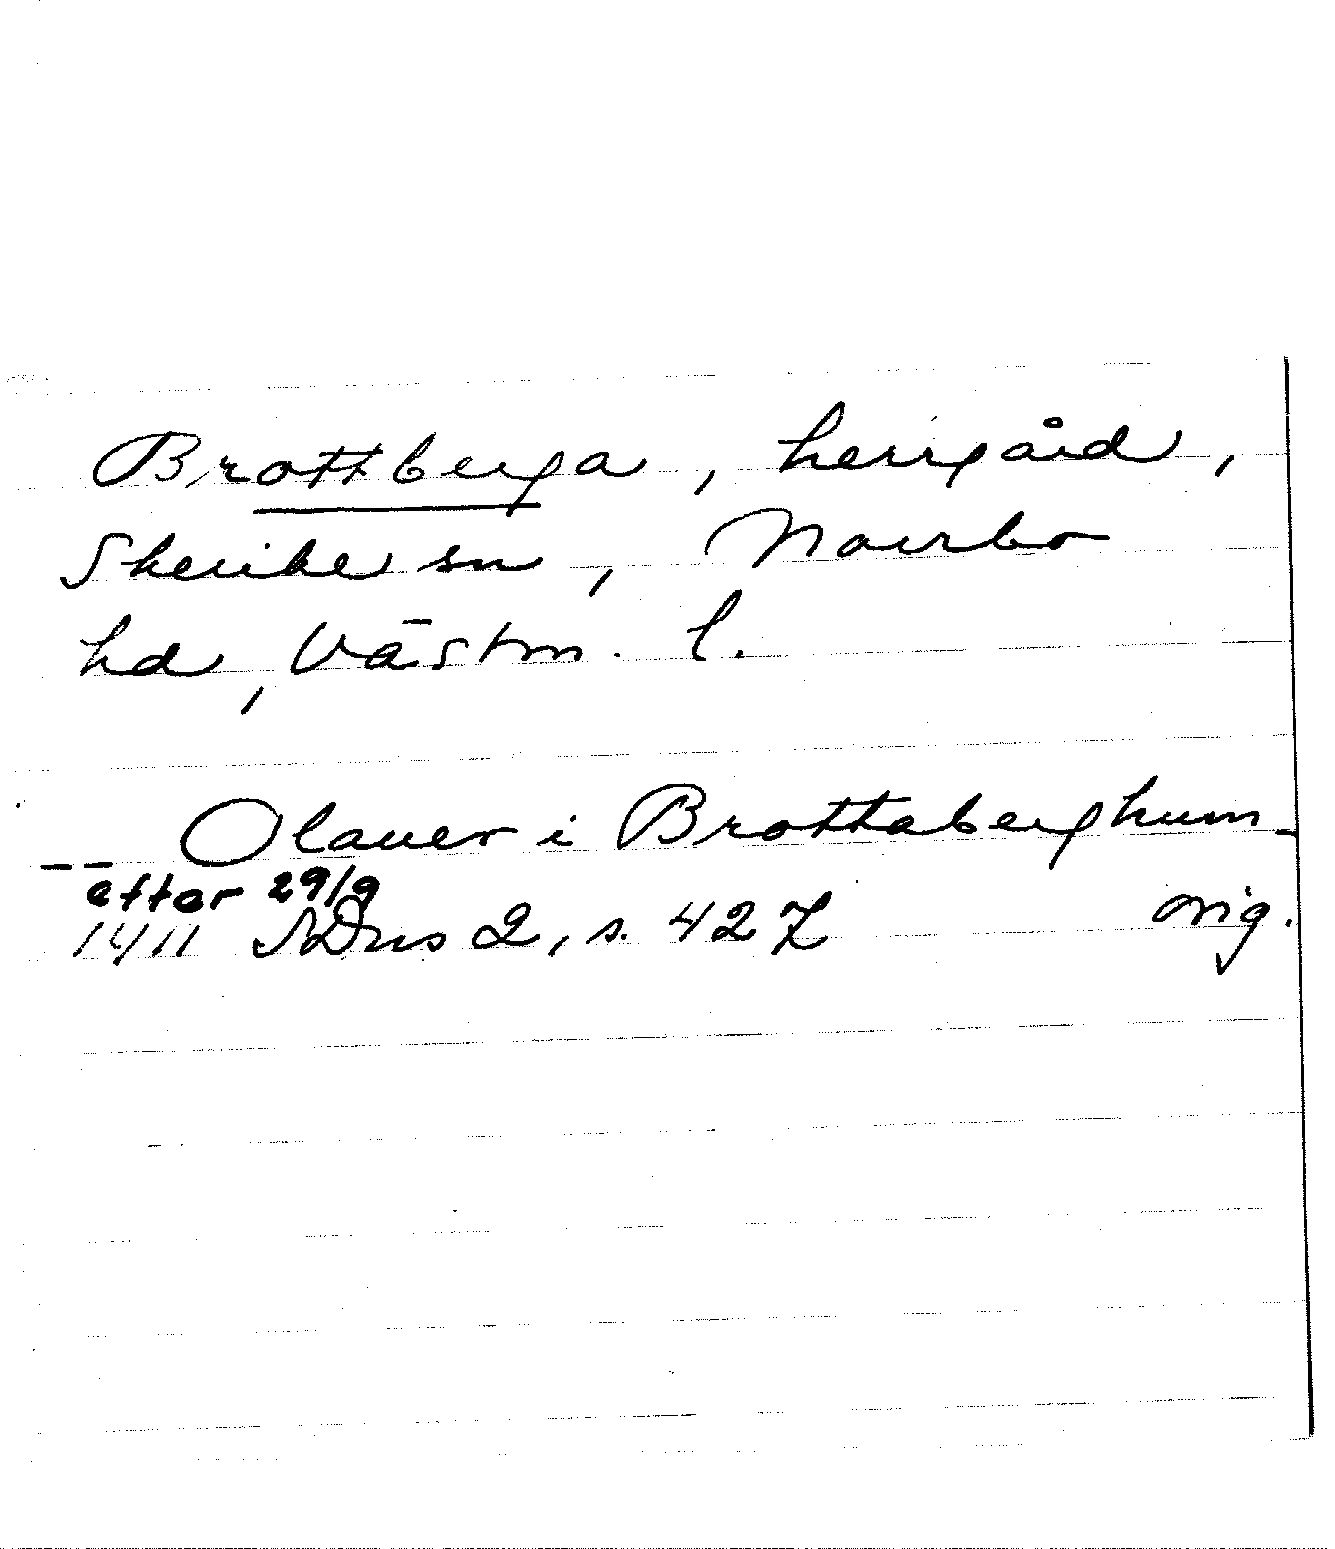 Brottberga, herrgård,
Skerike sn, Norrbo
hd, Västm. l.
-- Olauer i Brottaberghum -
efter 29/9
1411 SDns 2, s. 427 orig.